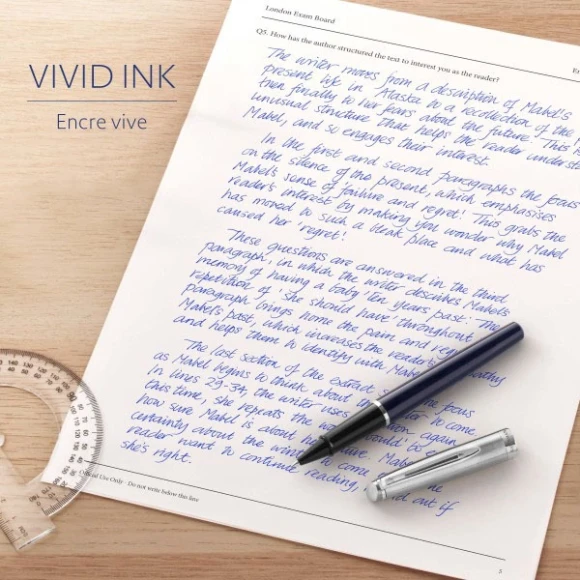 VIVID INK
Encre vive
London Exam Board
Q5. How has the author structured the text to interest you as the reader?
The writer moves from a description of Mabel's
present life in Alaska to a recollection of the
then finally to her fears about the future. This
unusual structure that helps the reader
Mabel, and so engages their interest.
In the first and second paragraphs the focus
on the silence of the present, which emphasises
Mabel's sense of 'failure and regret'. This grabs the
reader's interest by making you wonder why Mabel
has moved to such a bleak place and what has
caused her 'regret'.
These questions are answered in the third
paragraph, in which the writer describes Mabel's
memory of having a baby 'ten years past'. The
repetition of 'she should have' throughout
paragraph brings home the pain and
Mabel's past, which increases the reader's
and helps them to identify with Mabel
The last section of the extract
focus
as Mabel begins to think about the
to come
In lines 29-34, the writer uses
again
this time, she repeats the
would'
how sure Mabel is about
Mabel
certainty about the
to come
reader want to continue reading,
out if
she's right.
Official Use Only - Do not write below the line